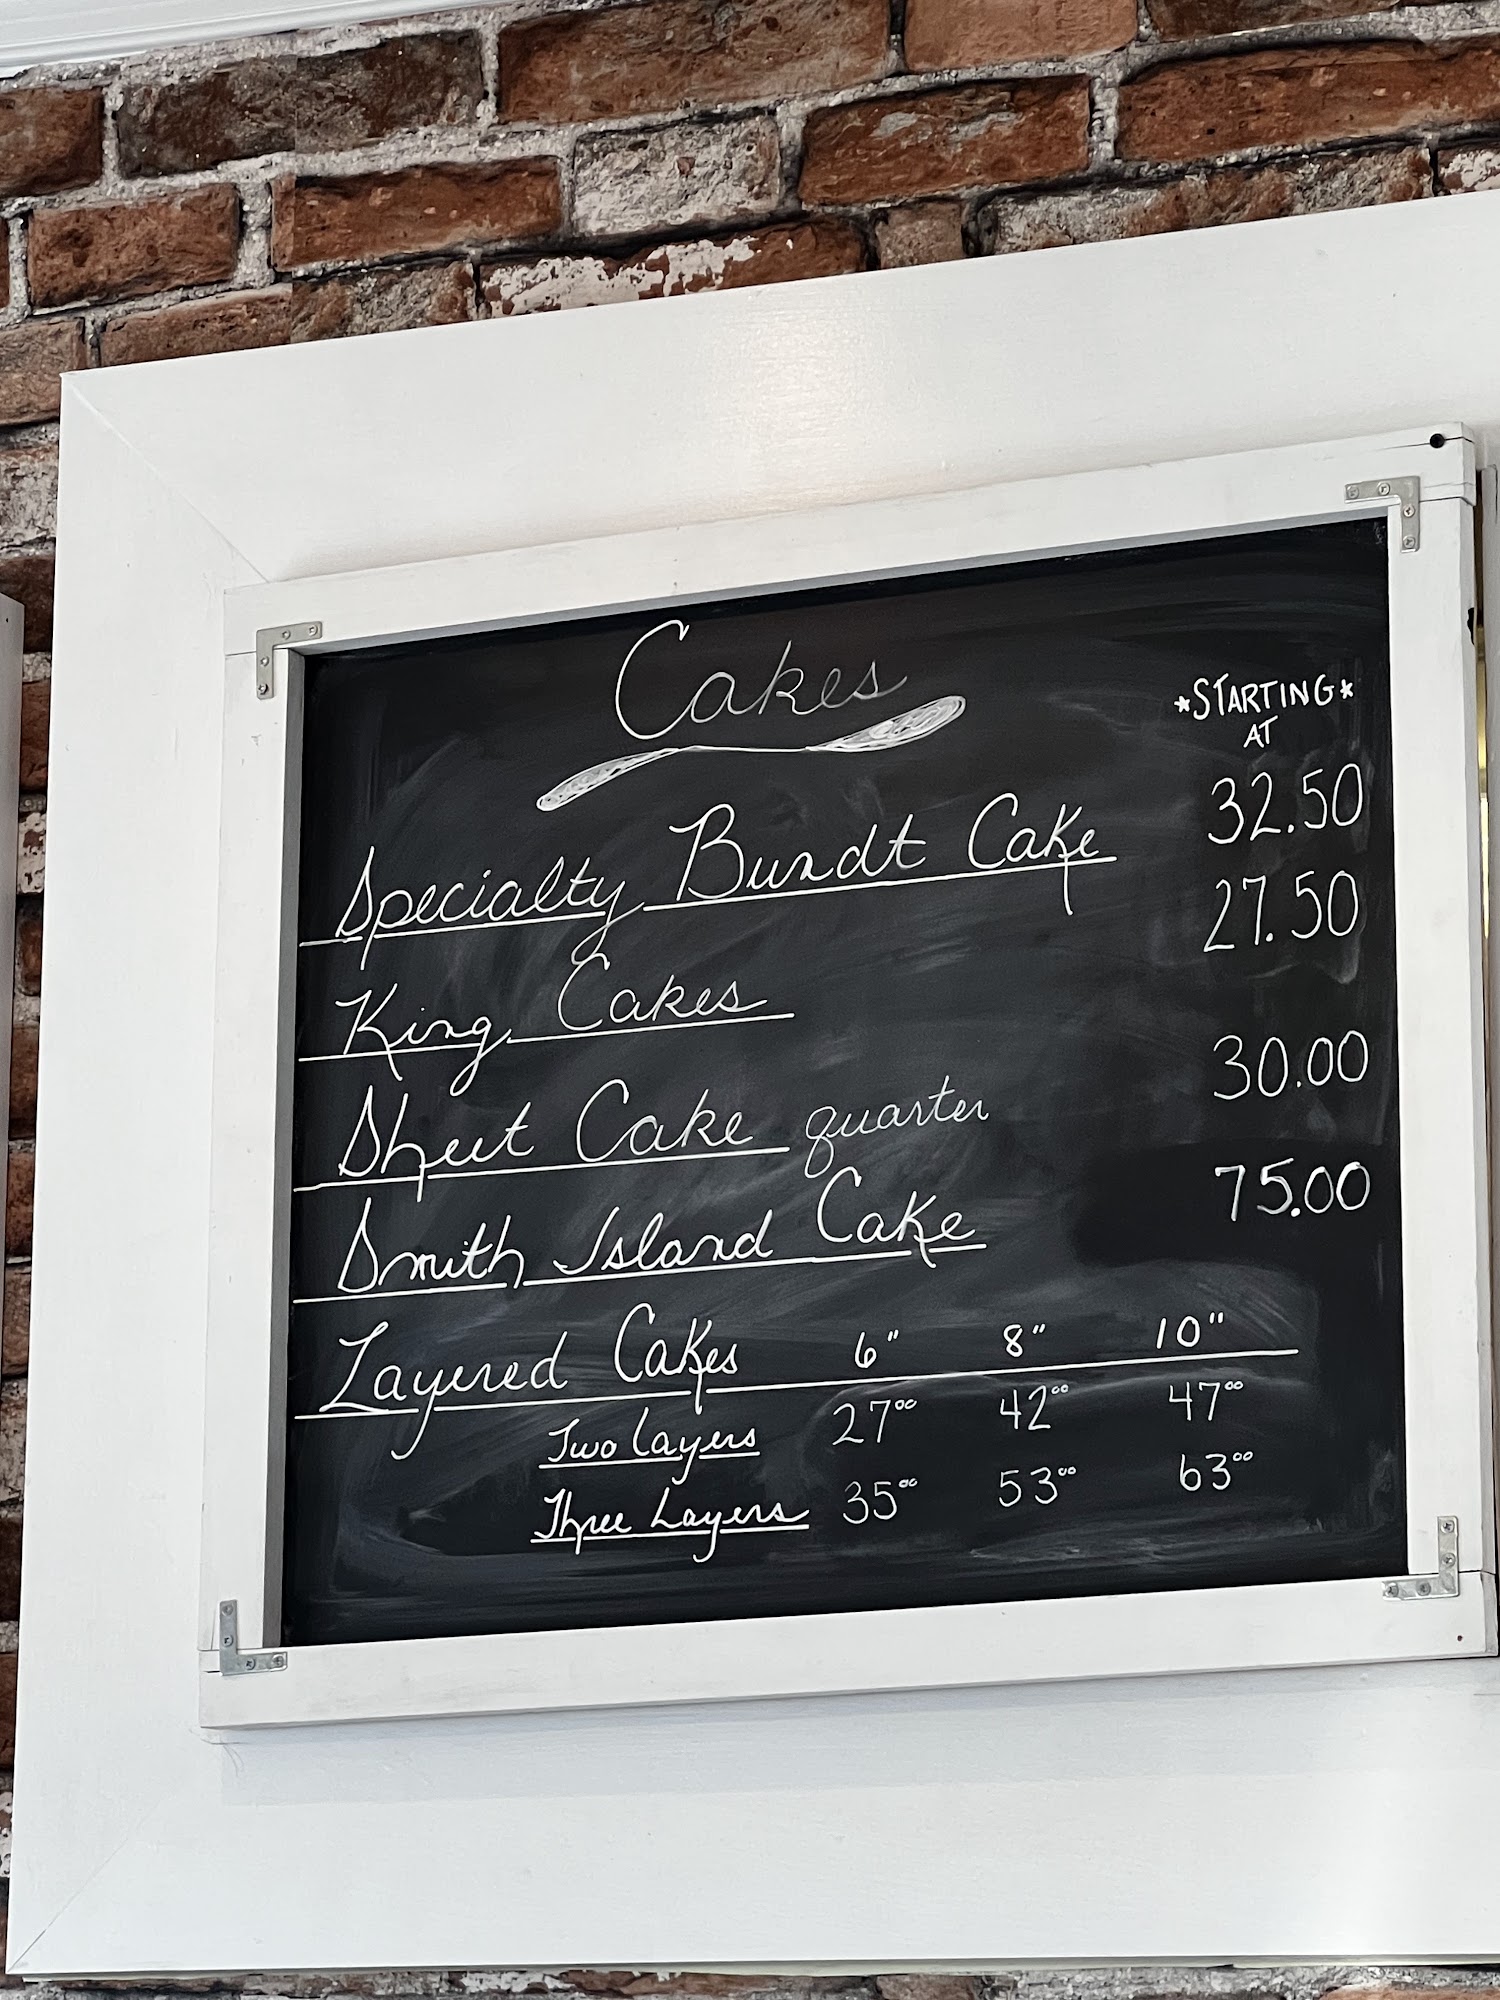 Cakes
*STARTING*
AT
Specialty Bundt Cake 32.50
King Cakes 27.50
Sheet Cake quarter 30.00
Smith Island Cake 75.00
Layered Cakes 6" 8" 10"
Two Layers 27⁰⁰ 42⁰⁰ 47⁰⁰
Three Layers 35⁰⁰ 53⁰⁰ 63⁰⁰